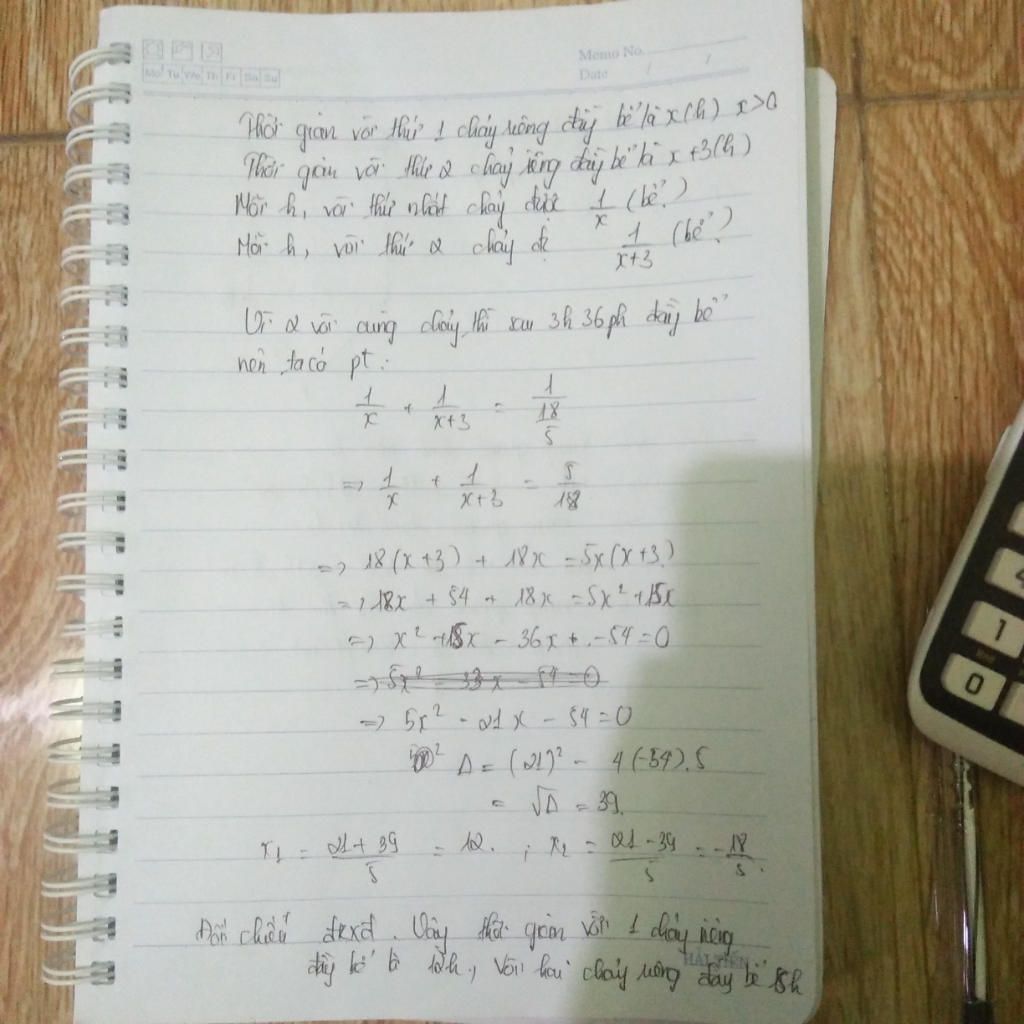 Memo No.
Mo Tu We Th Fr Sa Su
Date / /
Thời gian vòi thứ 1 chảy riêng đầy bể là x(h) x>0
Thời gian vòi thứ 2 chảy riêng đầy bể là x+3(h)
Mỗi h, vòi thứ nhất chảy được 1/x (bể)
Mỗi h, vòi thứ 2 chảy đc 1/(x+3) (bể)
Vì 2 vòi cùng chảy thì sau 3h 36ph đầy bể
nên ta có pt:
1/x + 1/(x+3) = 1/(18/5)
=> 1/x + 1/(x+3) = 5/18
=> 18(x+3) + 18x = 5x(x+3)
=> 18x + 54 + 18x = 5x² + 15x
=> x² + 15x - 36x + - 54 = 0
=> 5x² - 33x - 54 = 0
=> 5x² - 21x - 54 = 0
Δ = (21)² - 4(-54).5
= √Δ = 39.
x₁ = (21 + 39)/5 = 12. ; x₂ = (21 - 39)/5 = -18/5.
Đối chiếu đkxđ. Vậy thời gian vòi 1 chảy riêng
đầy bể là 12h, vòi hai chảy riêng đầy bể 15h
HẢI TIẾN
4
1
0